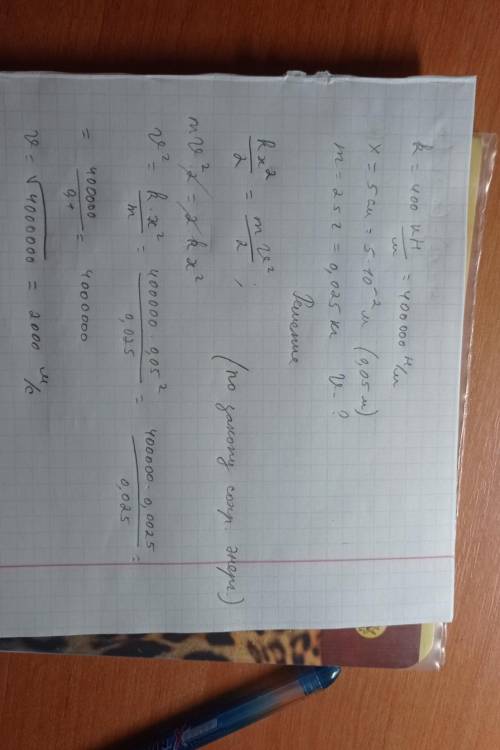 k = 400 кН/м = 400000 Н/м
x = 5 см = 5·10⁻² м (0,05 м)
m = 25 г = 0,025 кг v - ?
Решение
kx²/2 = mv²/2 ; (по закону сохр. энерг.)
mv²2 = 2kx²
v² = k·x²/m = 400000·0,05²/0,025 = 400000·0,0025/0,025 =
= 400000/0,1 = 4000000
v = √4000000 = 2000 м/с